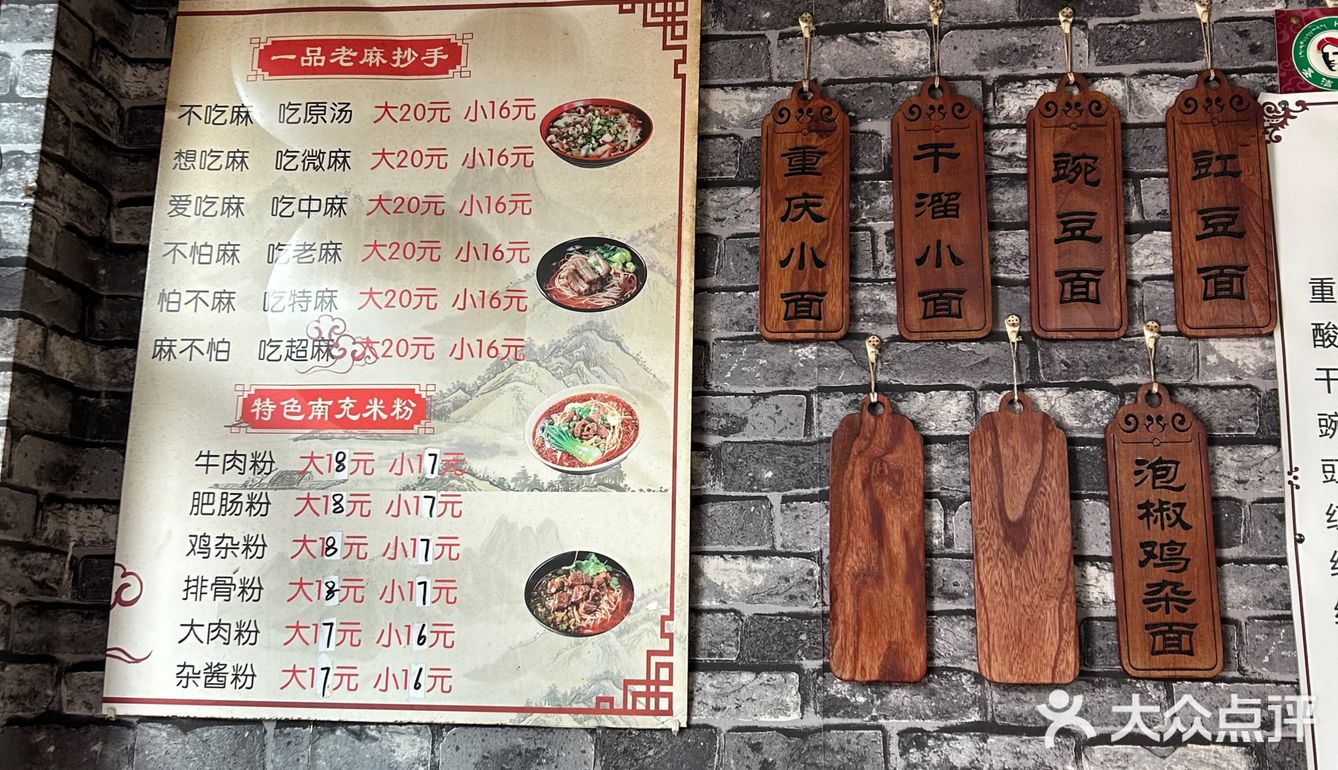 一品老麻抄手
不吃麻 吃原汤 大20元 小16元
想吃麻 吃微麻 大20元 小16元
爱吃麻 吃中麻 大20元 小16元
不怕麻 吃老麻 大20元 小16元
怕不麻 吃特麻 大20元 小16元
麻不怕 吃超麻 大20元 小16元
特色南充米粉
牛肉粉 大18元 小17元
肥肠粉 大18元 小17元
鸡杂粉 大18元 小17元
排骨粉 大18元 小17元
大肉粉 大17元 小16元
杂酱粉 大17元 小16元
重庆小面
干溜小面
豌豆面
豇豆面
泡椒鸡杂面
重
酸
干
豌
大众点评